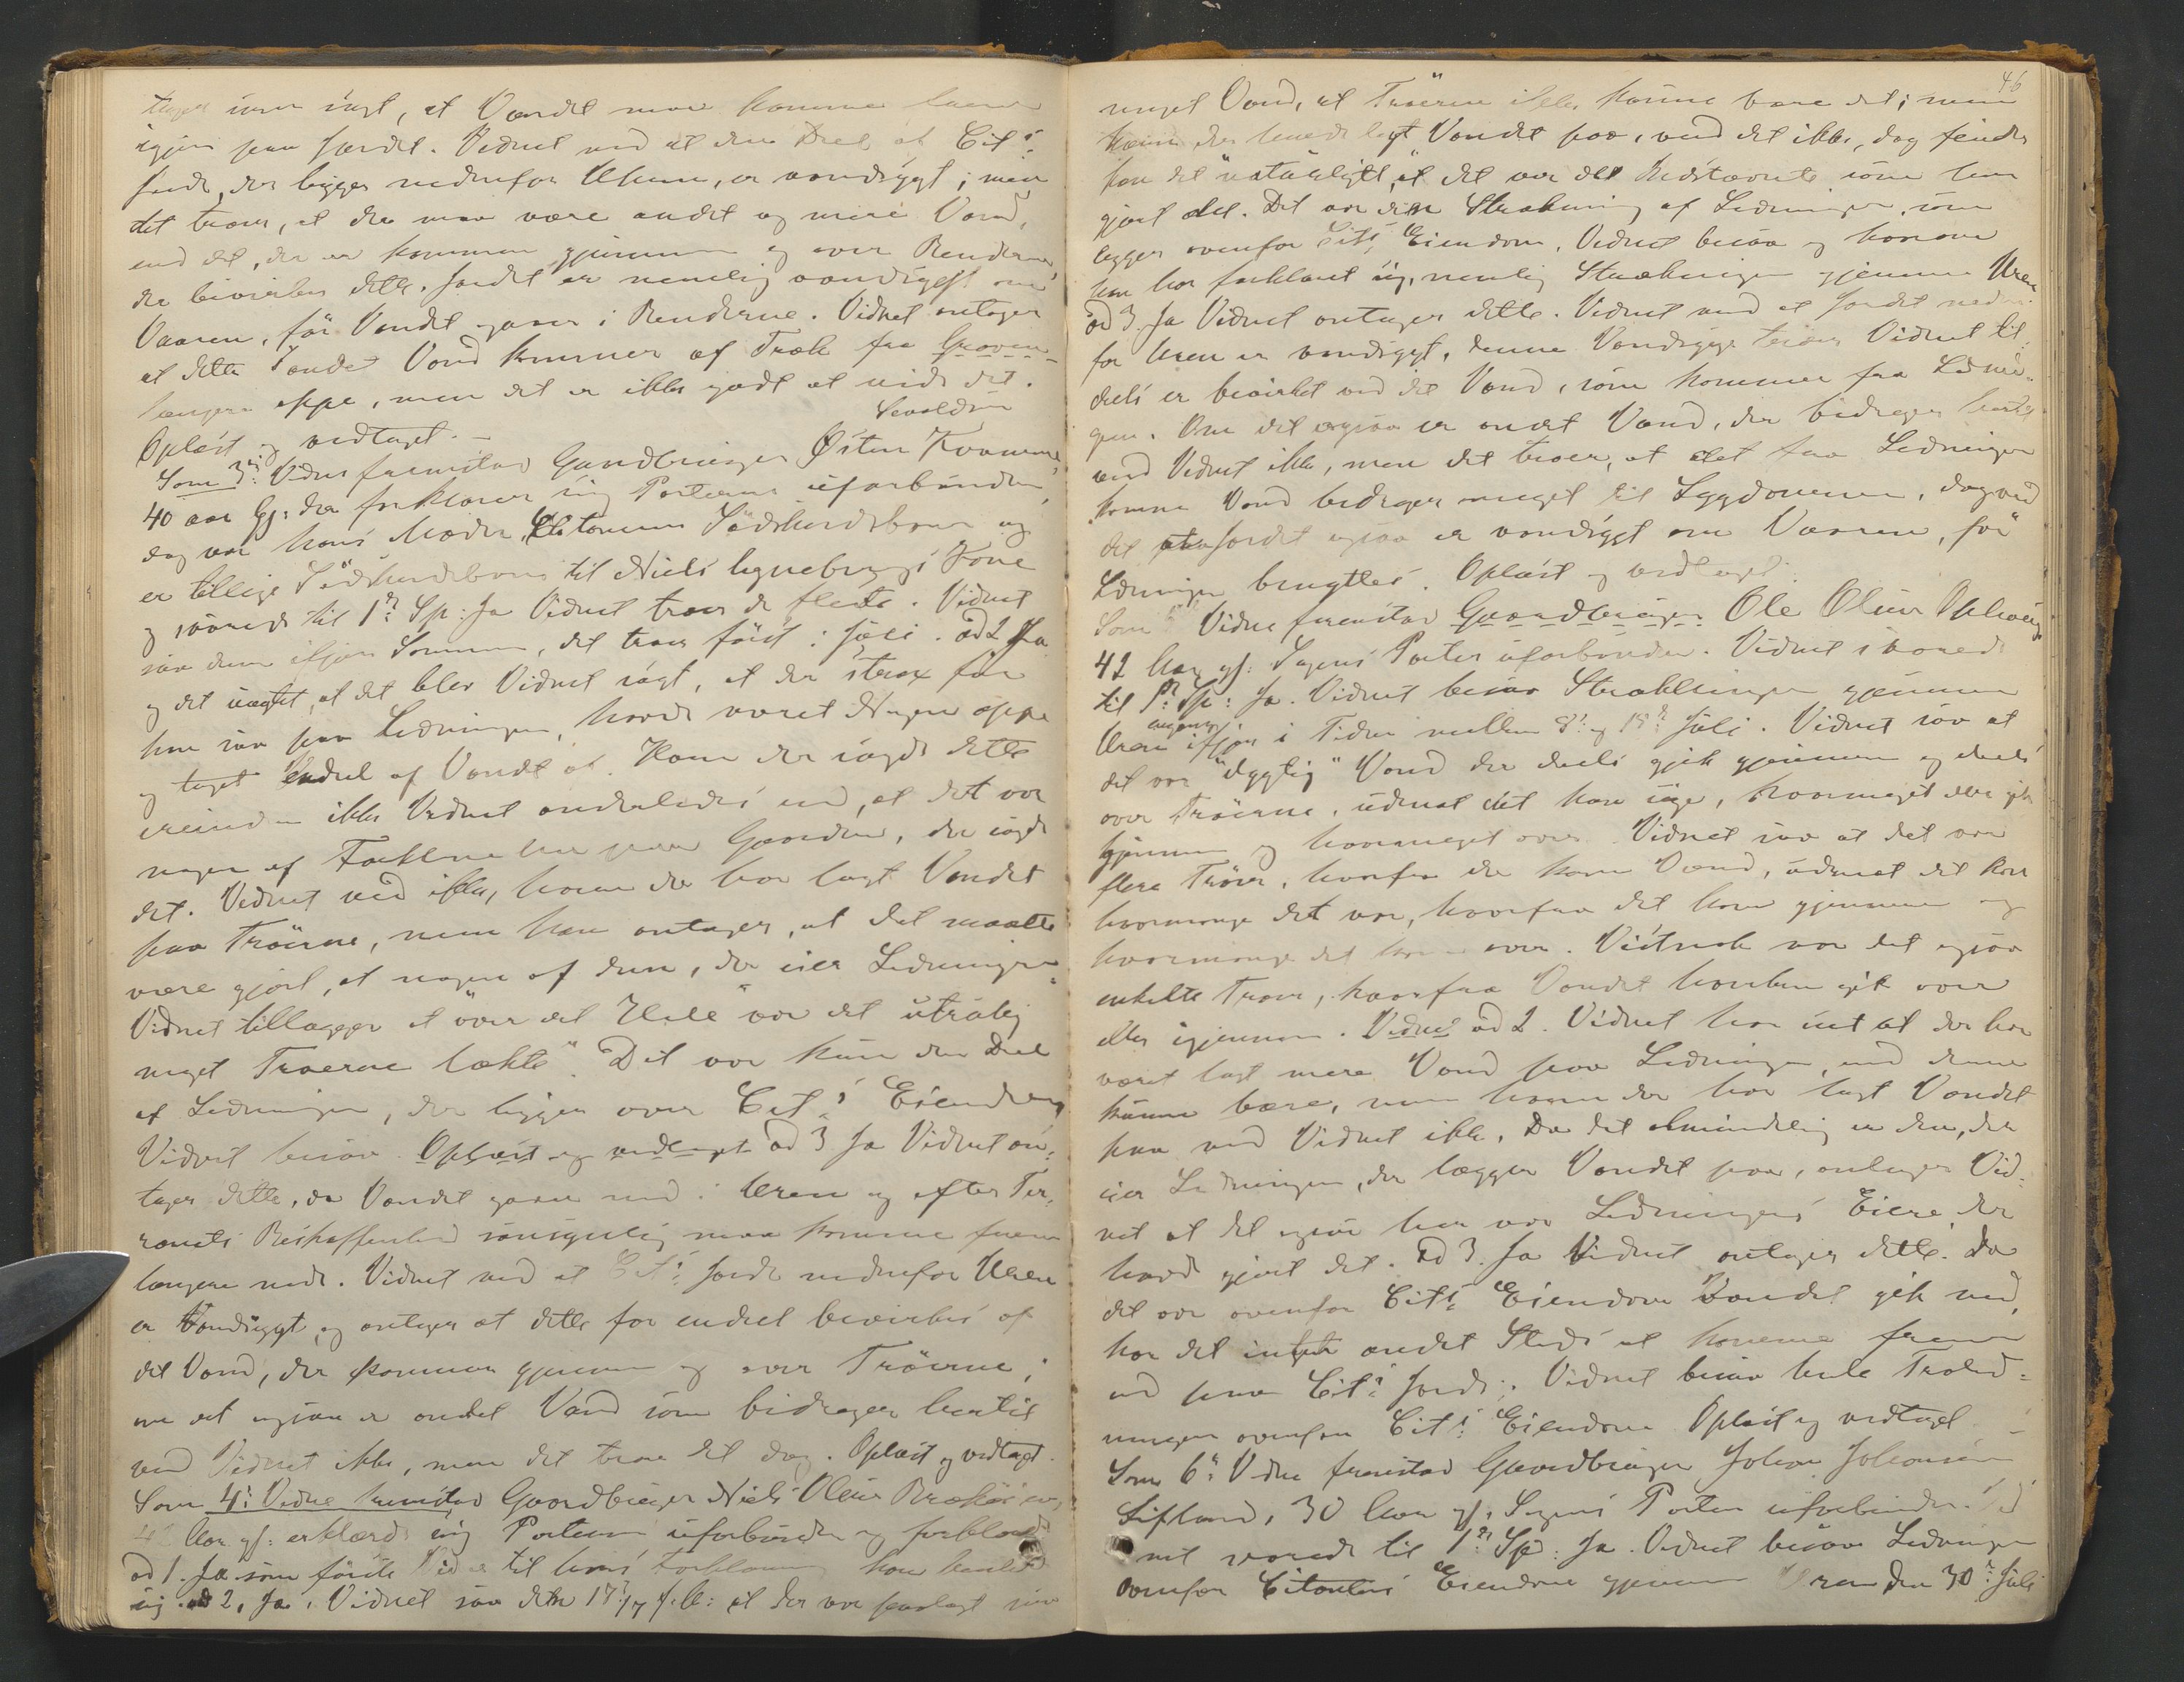 sagt, at Vandet maa komme
igjen paa Jordet. Vidnet ved at den Deel af Cit:s
Jord, der ligger nedenfor Uhren, er vandsygt; men
det troer, at der maa være andet og mere Vand,
end det, der er kommen gjennem og over Renderne,
der bevirker dette. Jordet er nemlig vandsygt om
Vaaren, før Vandet gaaer i Renderne. Vidnet antager
at dette Vand kommer af Træk fra
længere oppe, men det er ikke godt at vide det.
Sevaldsen
Oplæst og vedtaget. –
Som 3die Vidne fremstod Gaardbruger Østen
40 aar gj: der forklarer sig Parterne uforbunden,
dog var hans Moder Citantens Sødskendebarn og
er tillige Sødskendebarn til Niels Kone
og svarede til 1ste Sp: Ja Vidnet troer de fleste. Vidnet
saa dem ifjor Sommer, det troer først i Juli. ad 2 Ja
og det uagtet, at det blev Vidnet sagt, at der strax før
han saa paa Ledningen, havde været Nogen oppe
og taget endeel af Vandet af. Hvem der sagde dette
erindrer ikke Vidnet anderledes end, at det var
nogen af Folkene her paa Gaarden, der sagde
det. Vidnet ved ikke, hvem der har lagt Vandet
paa Trøerne, men han antager, at det maatte
være gjort, af nogen af dem, der eier Ledningen.
Vidnet tillægger at "over det Hele" var det utrolig
meget Trøerne lækte". Det var kun den Deel
af Ledningen, der ligger over Cit:s Eiendom
Vidnet besaa. Oplæst og vedtaget ad 3 Ja Vidnet an-
tager dette, da Vandet gaaer ned i Uren og efter Ter-
rænets Beskaffenhed sansynlig maa komme frem
længere nede. Vidnet ved at Cit:s Jorde nedenfor Uren
er Vandsygt, og antager at dette for endeel bevirkes af
det Vand, der kommer gjennem og over Trøerne;
om det ogsaa er andet Vand som bidrager hertil
ved Vidnet ikke, men det troer det dog. Oplæst og vedtaget.
Som 4de Vidne fremstod Gaardbruger Niels Olsen
Aar gl: erklærede sig Parterne uforbunden og forklarede
ad 1. Ja som første Vidne til hans Forklaring han henholdt
sig ad 2, Ja. Vidnet saa den 17/7 f. A: at der var paalagt saa
46
meget Vand, at Trøerne ikke kunne bære det; men
hvem der havde lagt Vandet paa, ved det ikke, dog finder
han det "rataeligst", at det var det Indstævnte som har
gjort det. Det var den Strækning af Ledningen, som
ligger ovenfor Cit:s Eiendom, Vidnet besaa og hvorom
han har forklaret sig, nemlig Strækningen gjennem Uren
ad 3. Ja Vidnet antager dette. Vidnet ved at Jordet neden-
for Uren er vandsygt, denne Vandsyge troer Vidnet til-
deels er bevirket ved det Vand, som kommer fra Lednin-
gen. Om det ogsaa er andet Vand, der bidrager hertil
ved Vidnet ikke, men det troer, at det fra Ledningen
komne Vand bidrager meget til Sygdommen, dog ved
det at Jordet ogsaa er vandsygt om Vaaren, før
Ledningen benyttes. Oplæst og vedtaget.
Som Vidne fremstod Gaardbruger Ole Olsen
42 Aar gl: Sagens Parter uforbunden. Vidnet svarede
til 1ste Sp: Ja. Vidnet besaa Strækningen gjennem
Uren ifjor i Tiden mellem 8de og 15de Juli. Vidnet saa at
det var "dygtig" Vand der deels gjik gjennem og deels
over Trøerne, uden at det kan sige, hvormeget der gik
gjennem og hvormeget over. Vidnet saa at det var
flere Trøer, hvorfra der kom Vand, uden at det kan
hvormange det var, hvorfra det kom gjennem og
hvormange det kom over. Vistnok var det ogsaa
enkelte Trøer, hvorfra Vandet hverken gik over
eller igjennem. Vidnet ad 2. Vidnet har seet at der har
været lagt mere Vand paa Ledningen, end denne
kunne bære, men hvem der har lagt Vandet
paa ved Vidnet ikke. Da det almindelig er den, der
eier Ledningen, der lægger Vandet paa, antager Vid-
net at det ogsaa her var Ledningens Eiere, der
havde gjort det. ad 3. Ja Vidnet antager dette. Da
det var ovenfor Cit:s Eiendom Vandet gik ned,
har det intet andet Steds at komme frem
end paa Cit:s Jorde. Vidnet besaa hele Troled-
ningen ovenfor Cit:s Eiendom Oplæst og vedtaget –
Som 6te Vidne fremstod Gaardbruger Johan Johansen
30 Aar gl, Sagens Parter uforbunden. Vid-
net svarede til 1ste Sp: Ja. Vidnet besaa Ledningen
ovenfor Citantens Eiendom gjennem Uren den 30te Juli